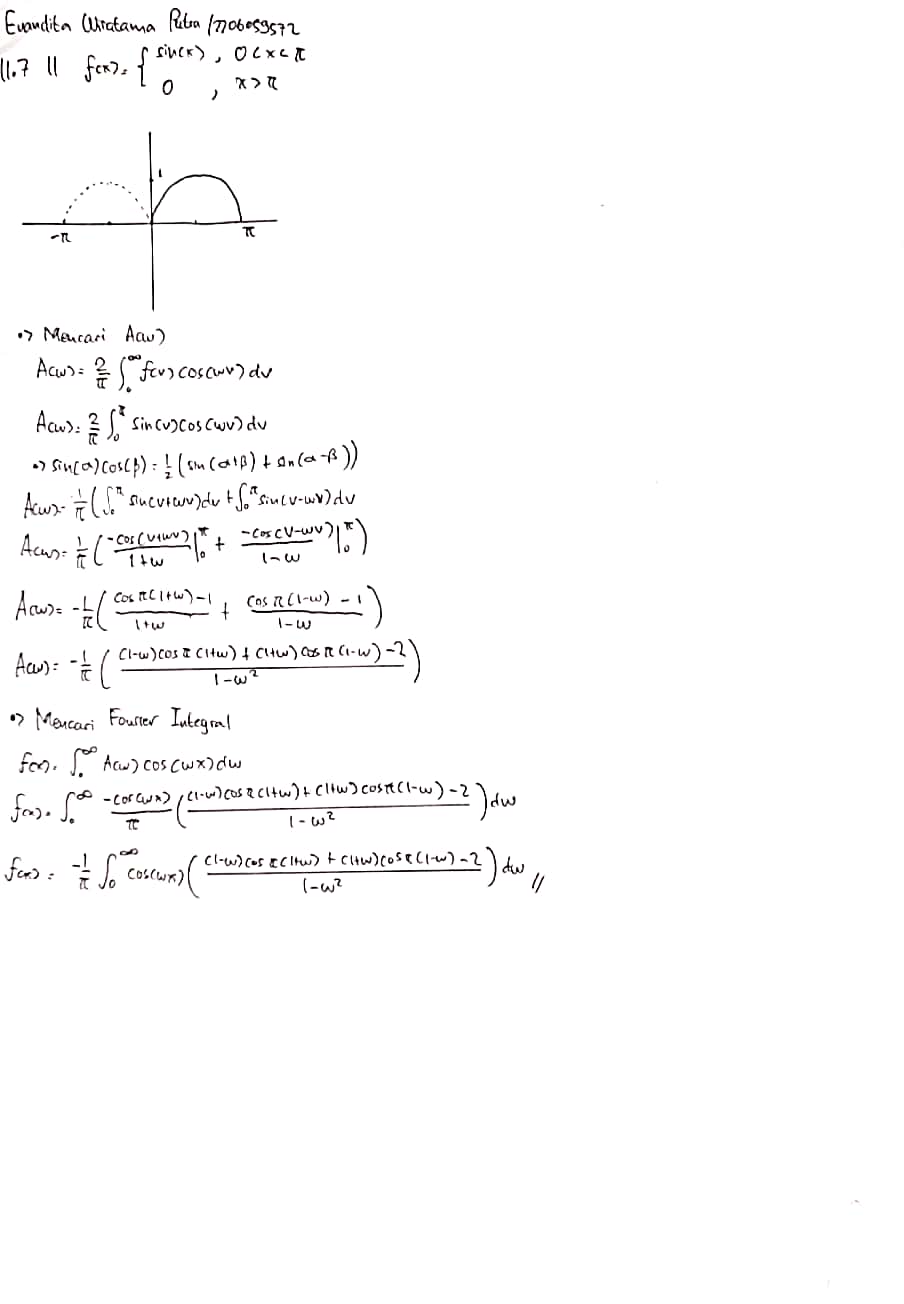 Evandita Wiratama Putra / 1706059572
11.7 11 f(x) = { sin(x) , 0 < x < π
0 , x > π
1
-π π
•> Mencari A(w)
A(w) = 2/π ∫₀^∞ f(v) cos(wv) dv
A(w) = 2/π ∫₀^π sin(v) cos(wv) dv
•> sin(α) cos(β) = 1/2 (sin(α+β) + sin(α-β))
A(w) = 1/π (∫₀^π sin(v+wv) dv + ∫₀^π sin(v-wv) dv
A(w) = 1/π (-cos(v+wv)/1+w |₀^π + -cos(v-wv)/1-w |₀^π)
A(w) = -1/π (cos π(1+w) -1/1+w + cos π(1-w) -1/1-w)
A(w) = -1/π ((1-w) cos π (1+w) + (1+w) cos π (1-w) -2/1-w²)
•> Mencari Fourier Integral
f(x) = ∫₀^∞ A(w) cos(wx) dw
f(x) = ∫₀^∞ -cos(wx)/π ((1-w) cos π (1+w) + (1+w) cos π (1-w) -2/1-w²) dw
f(x) = -1/π ∫₀^∞ cos(wx) ((1-w) cos π (1+w) + (1+w) cos π (1-w) -2/1-w²) dw //